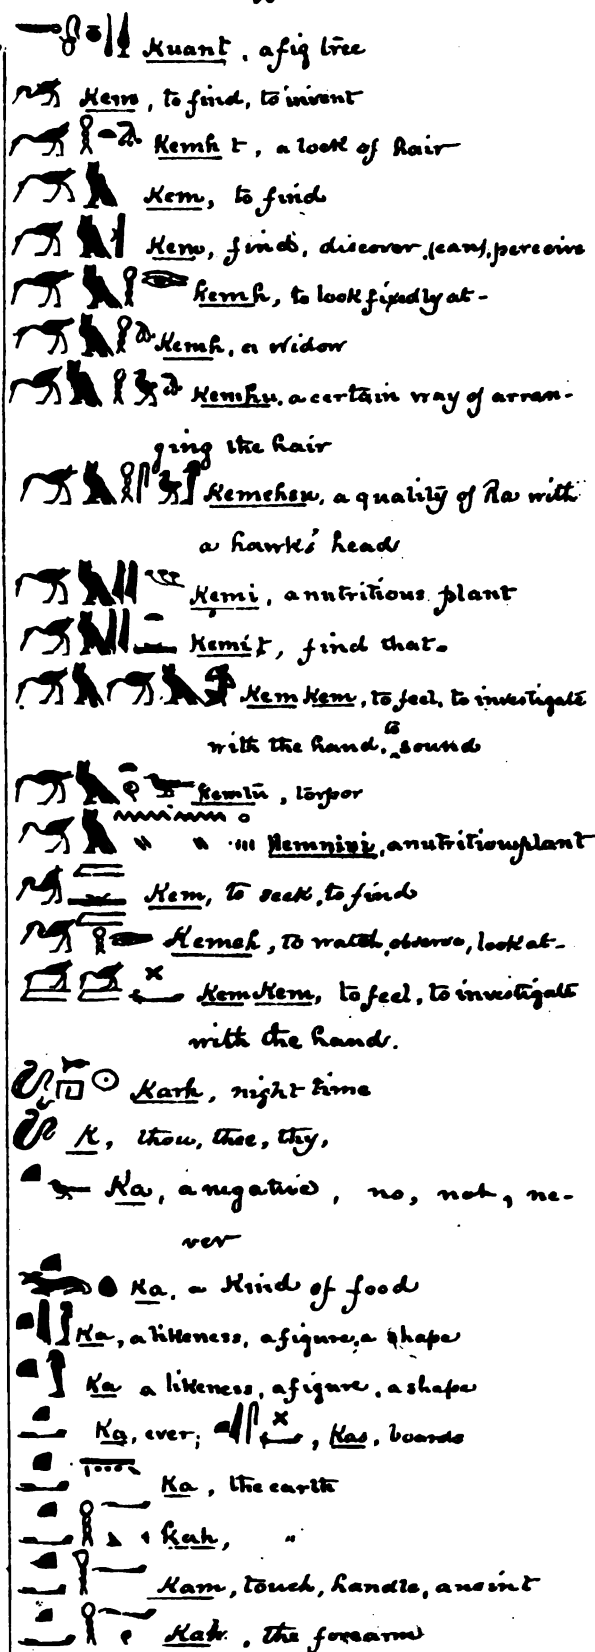 Kuant, a fig tree
Kem, to find, to invent
Kemh t, a lock of hair
Kem, to find
Kem, find, discover, (can), perceive
Kemh, to look fixedly at-
Kemh, a widow
Kemhu, a certain way of arran-
ging the hair
Kemehsu, a quality of Ra with
a hawk's head
Kemi, a nutritious plant
Kemit, find that.
Kem Kem, to feel, to investigate
with the hand, to sound
Kemtu, torpor
Kemnini, a nutritious plant
Kem, to seek, to find
Kemeh, to watch, observe, look at-
Kem Kem, to feel, to investigate
with the hand.
Karh, night time
K, thou, thee, thy,
Ka, a negative, no, not, ne-
ver
Ka, a kind of food
Ka, a likeness, a figure, a shape
Ka a likeness, a figure, a shape
Ka, ever; Kas, boards
Ka, the earth
Kah, "
Kam, touch, handle, anoint
Kah, the forearm